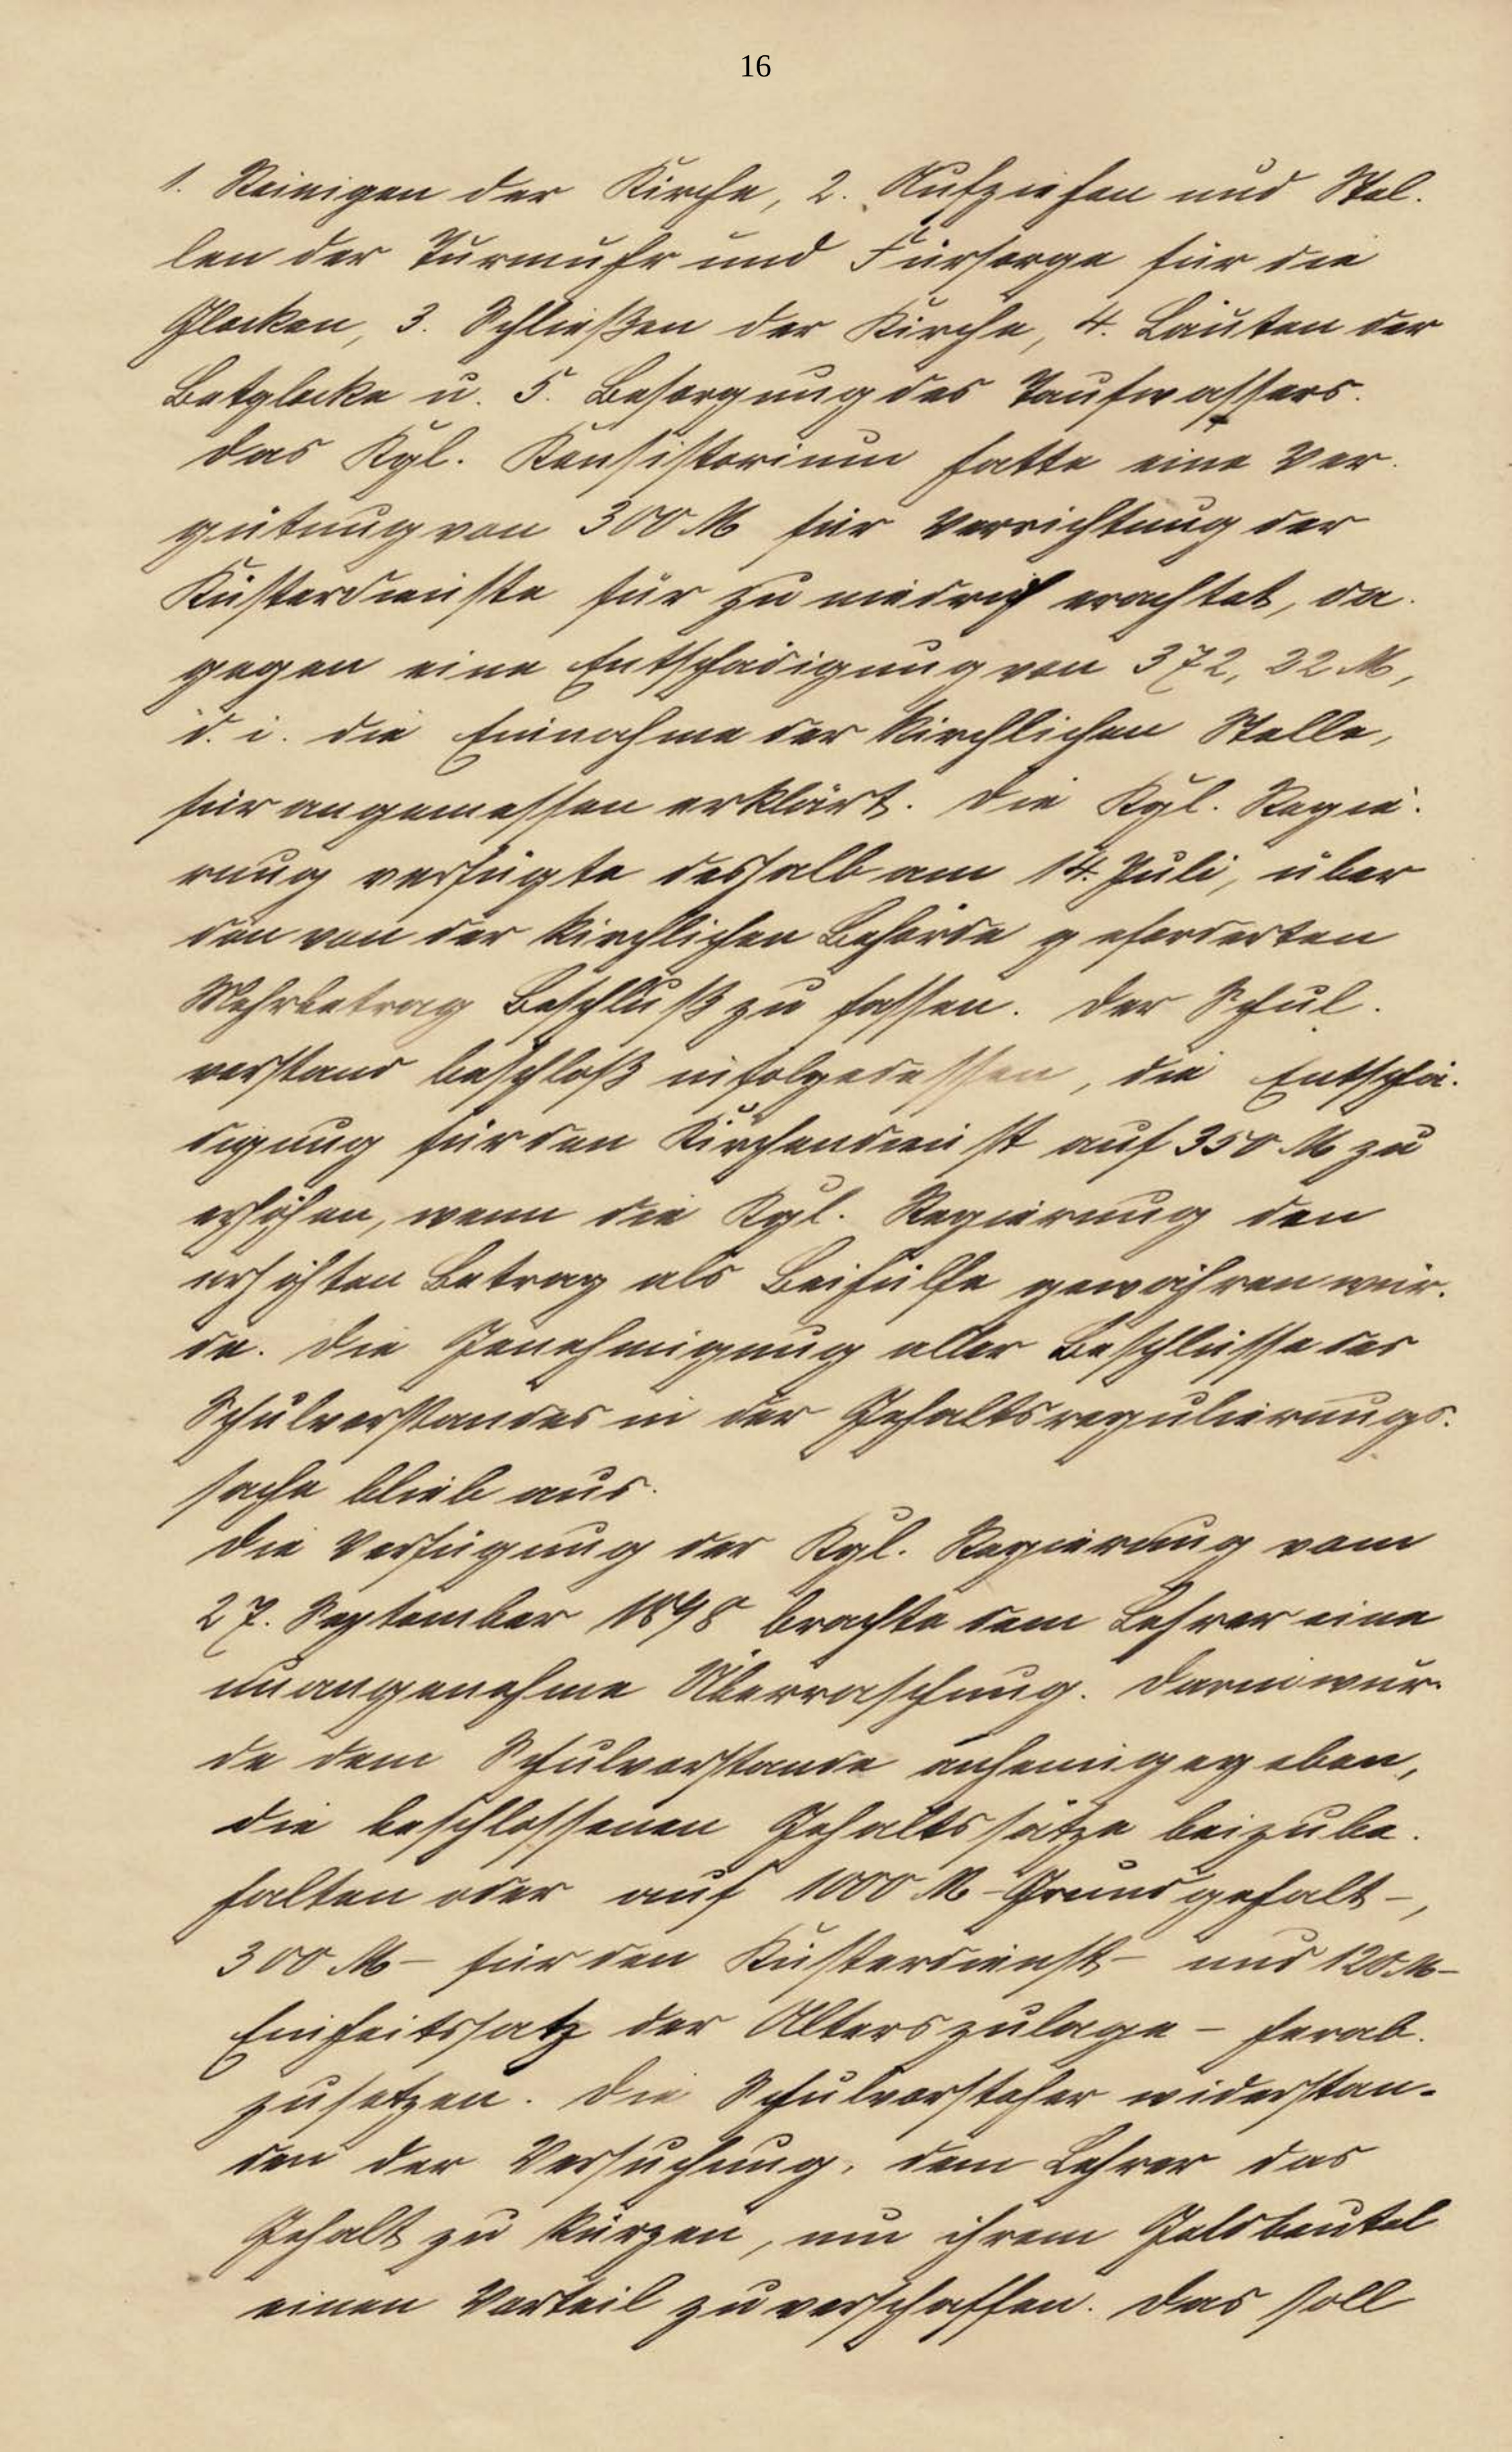 16
1. Reinigen der Kirche, 2. Aufziehen und Stel-
len der Turmuhr und Fürsorge für die
Glocken, 3. Schließen der Kirche, 4. Läuten der
Betglocke u. 5. Besorgung des Taufwassers.
Das Kgl. Konsistorium hatte eine Ver-
gütung von 300 M für Verrichtung der
Küsterdienste für zu niedrig erachtet, da-
gegen eine Entschädigung von 372,22 M,
d. i. die Einnahme der kirchlichen Stelle,
für angemessen erklärt. Die Kgl. Regie-
rung verfügte deshalb am 14. Juli, über
den von der kirchlichen Behörde geforderten
Mehrbetrag Beschluß zu fassen. Der Schul-
vorstand beschloß infolgedessen, die Entschä-
digung für den Kirchendienst auf 350 M zu
erhöhen, wenn die Kgl. Regierung den
erhöhten Betrag als Beihülfe gewähren wür-
de. Die Genehmigung aller Beschlüsse des
Schulvorstandes in der Gehaltsregulierungs-
sache blieb aus.
Die Verfügung der Kgl. Regierung vom
27. September 1898 brachte dem Lehrer eine
unangenehme Überraschung. Darin wur-
de dem Schulvorstande anheimgegeben,
die beschlossenen Gehaltssätze beizube-
halten oder auf 1000 M - Grundgehalt -,
300 M - für den Küsterdienst - und 120 M -
Einheitssatz der Alterszulage - herab-
zusetzen. Die Schulvorsteher widerstan-
den der Versuchung, dem Lehrer das
Gehalt zu kürzen, um ihrem Geldbeutel
einen Vorteil zu verschaffen. Das soll